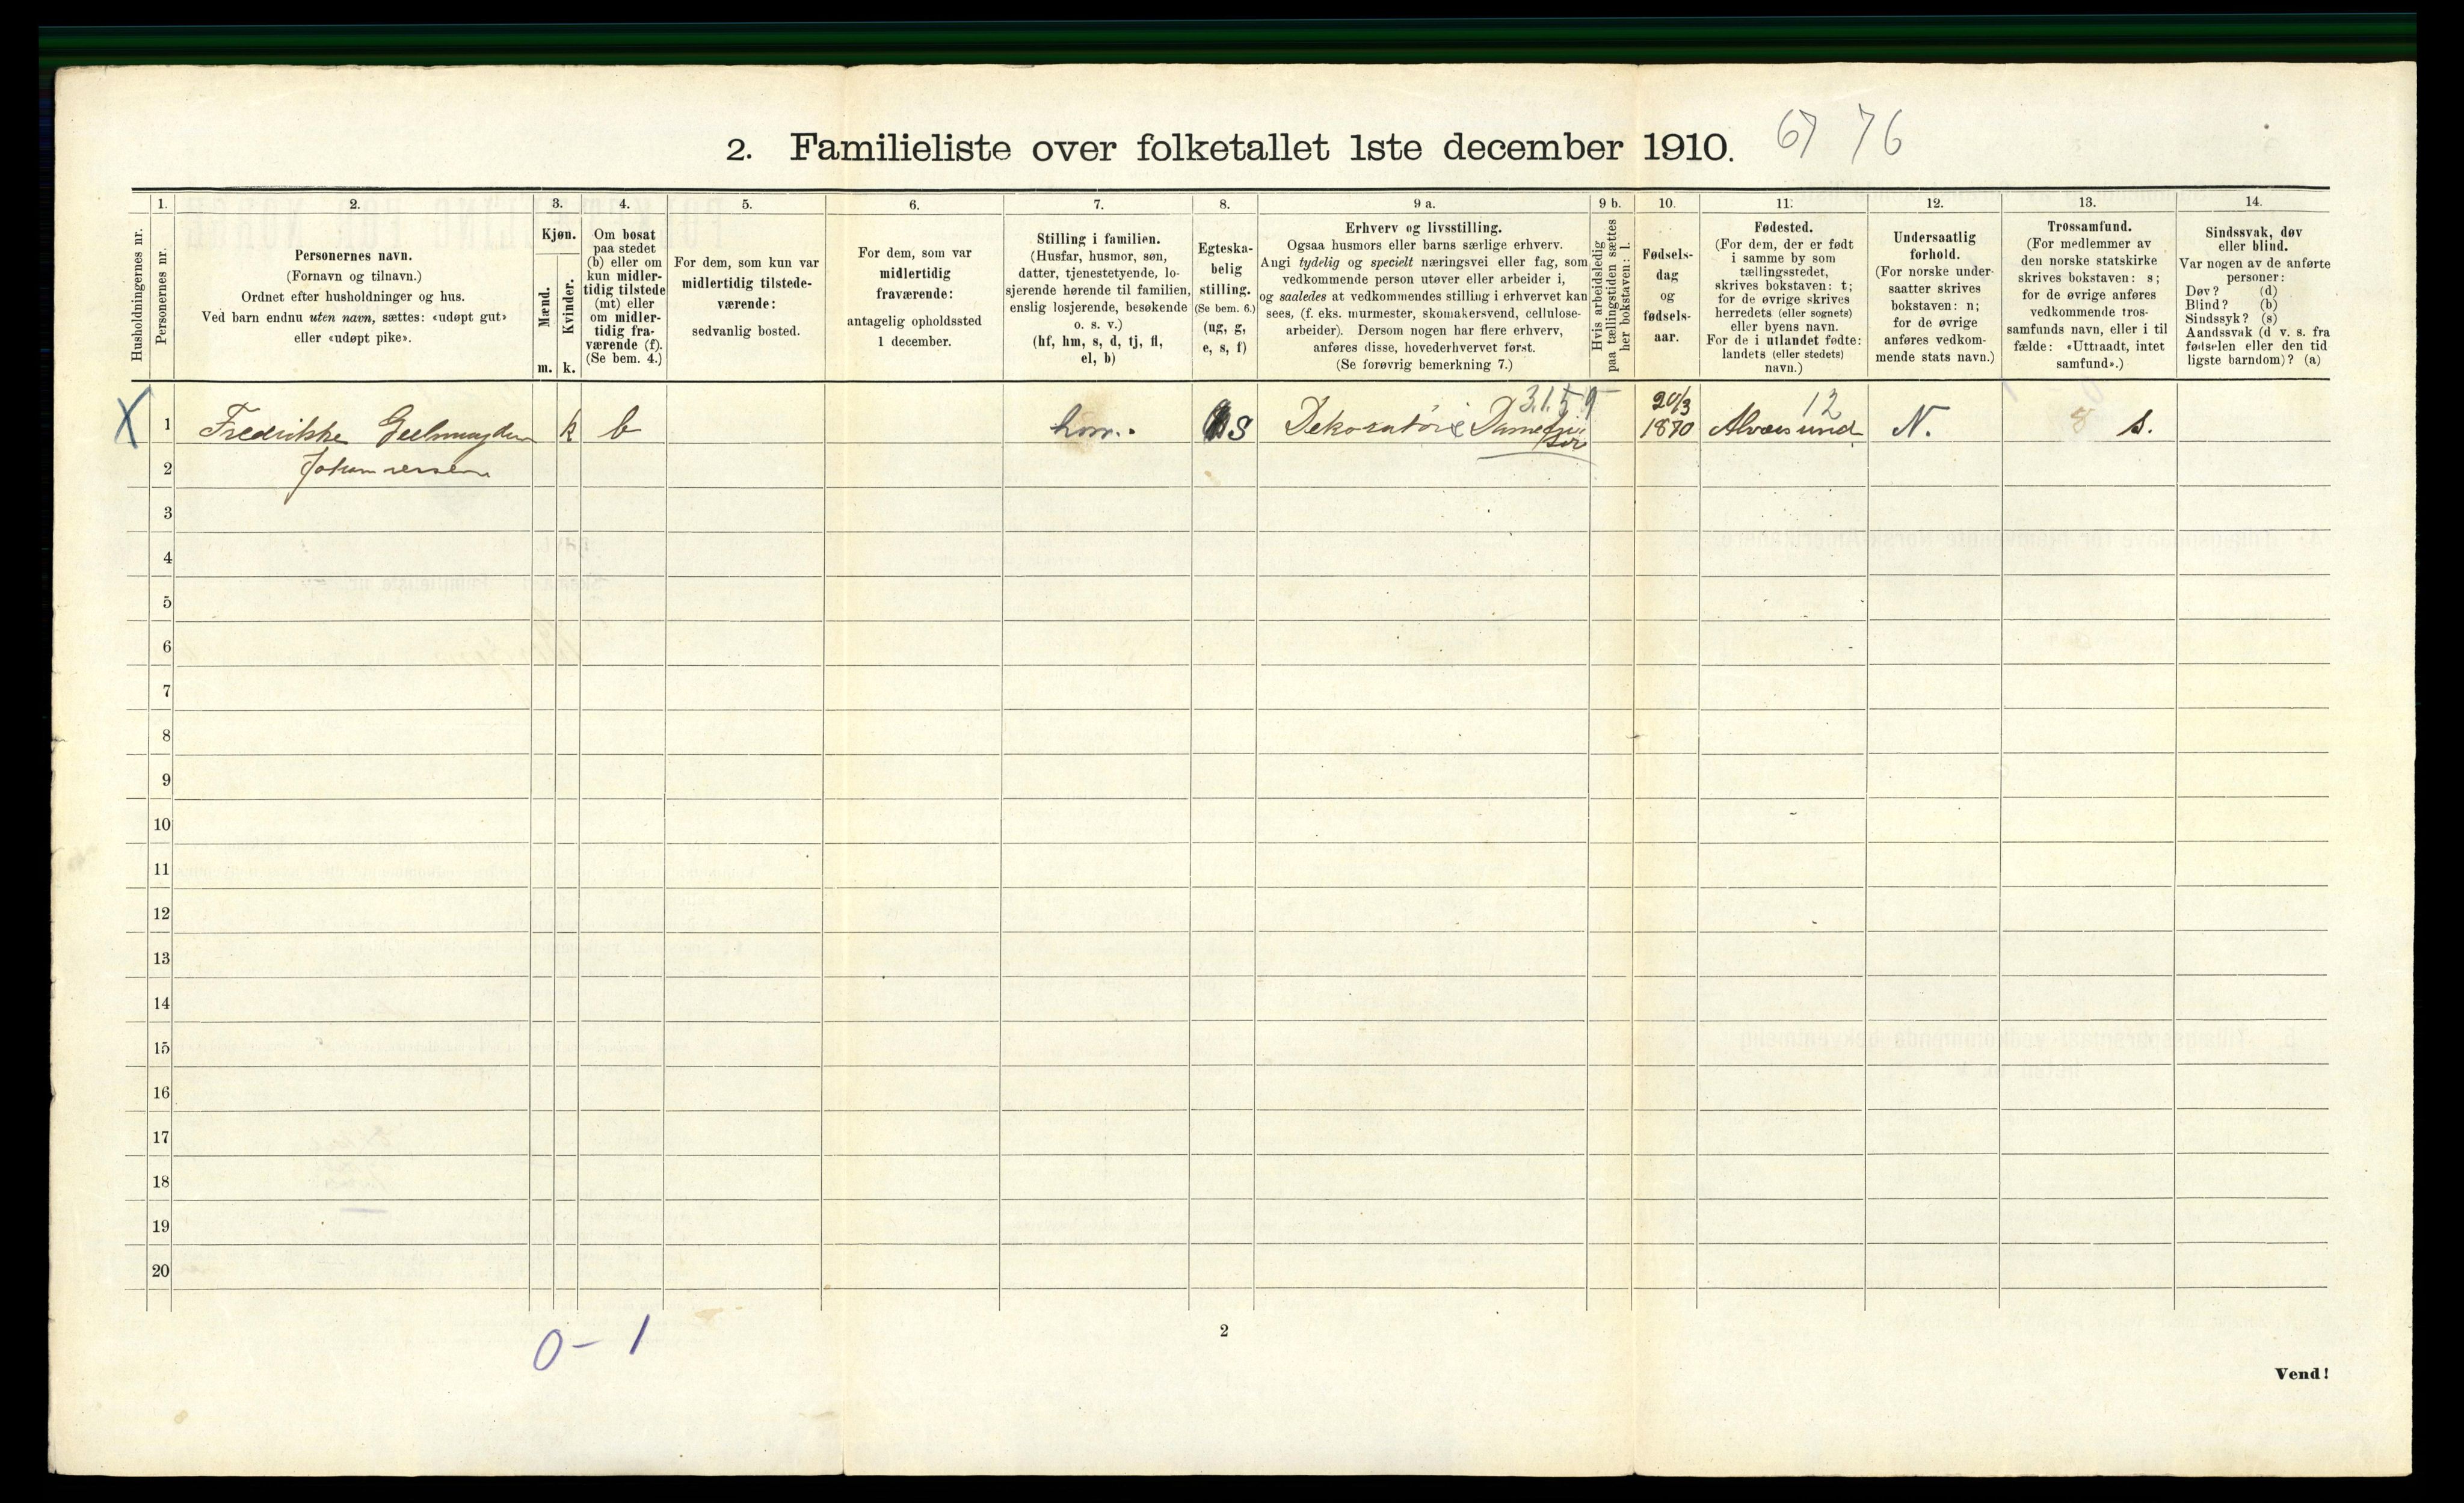 2. Familieliste over folketallet 1ste december 1910. 67 76
1. 2. 3. 4. 5. 6. 7. 8. 9 a. 9 b. 10. 11. 12. 13. 14.
Husholdningernes nr.
Personernes nr.
Personernes navn.
(Fornavn og tilnavn.)
Ordnet efter husholdninger og hus.
Ved barn endnu uten navn, sættes: «udøpt gut»
eller «udøpt pike».
Kjøn.
Mænd.
Kvinder.
m. k.
Om bosat
paa stedet
(b) eller om
kun midler-
tidig tilstede
(mt) eller
om midler-
tidig fra-
værende (f).
(Se bem. 4.)
For dem, som kun var
midlertidig tilstede-
værende:
sedvanlig bosted.
For dem, som var
midlertidig
fraværende:
antagelig opholdssted
1 december.
Stilling i familien.
(Husfar, husmor, søn,
datter, tjenestetyende, lo-
sjerende hørende til familien,
enslig losjerende, besøkende
o. s. v.)
(hf, hm, s, d, tj, fl,
el, b)
Egteska-
belig
stilling.
(Se bem. 6.)
(ug, g,
e, s, f)
Erhverv og livsstilling.
Ogsaa husmors eller barns særlige erhverv.
Angi tydelig og specielt næringsvei eller fag, som
vedkommende person utøver eller arbeider i,
og saaledes at vedkommendes stilling i erhvervet kan
sees, (f. eks. murmester, skomakersvend, cellulose-
arbeider). Dersom nogen har flere erhverv,
anføres disse, hovederhvervet først.
(Se forøvrig bemerkning 7.)
Hvis arbeidsledig
paa tællingstiden sættes
her bokstaven: l.
Fødsels-
dag
og
fødsels-
aar.
Fødested.
(For dem, der er født
i samme by som
tællingsstedet,
skrives bokstaven: t;
for de øvrige skrives
herredets (eller sognets)
eller byens navn.
For de i utlandet fødte:
landets (eller stedets)
navn.)
Undersaatlig
forhold.
(For norske under-
saatter skrives
bokstaven: n;
for de øvrige
anføres vedkom-
mende stats navn.)
Trossamfund.
(For medlemmer av
den norske statskirke
skrives bokstaven: s;
for de øvrige anføres
vedkommende tros-
samfunds navn, eller i til
fælde: «Uttraadt, intet
samfund».)
Sindssvak, døv
eller blind.
Var nogen av de anførte
personer:
Døv? (d)
Blind? (b)
Sindssyk? (s)
Aandssvak (d v. s. fra
fødselen eller den tid
ligste barndom)? (a)
3.1.5 9 20/3 12
X 1 Fredrikke Geelmuyden k b hm. s Dekoratør Damefri 1870 Alværsund N. s.
sør
2 Johannessen
3
4
5
6
7
8
9
10
11
12
13
14
15
16
17
18
19
20
0 - 1
2
Vend!